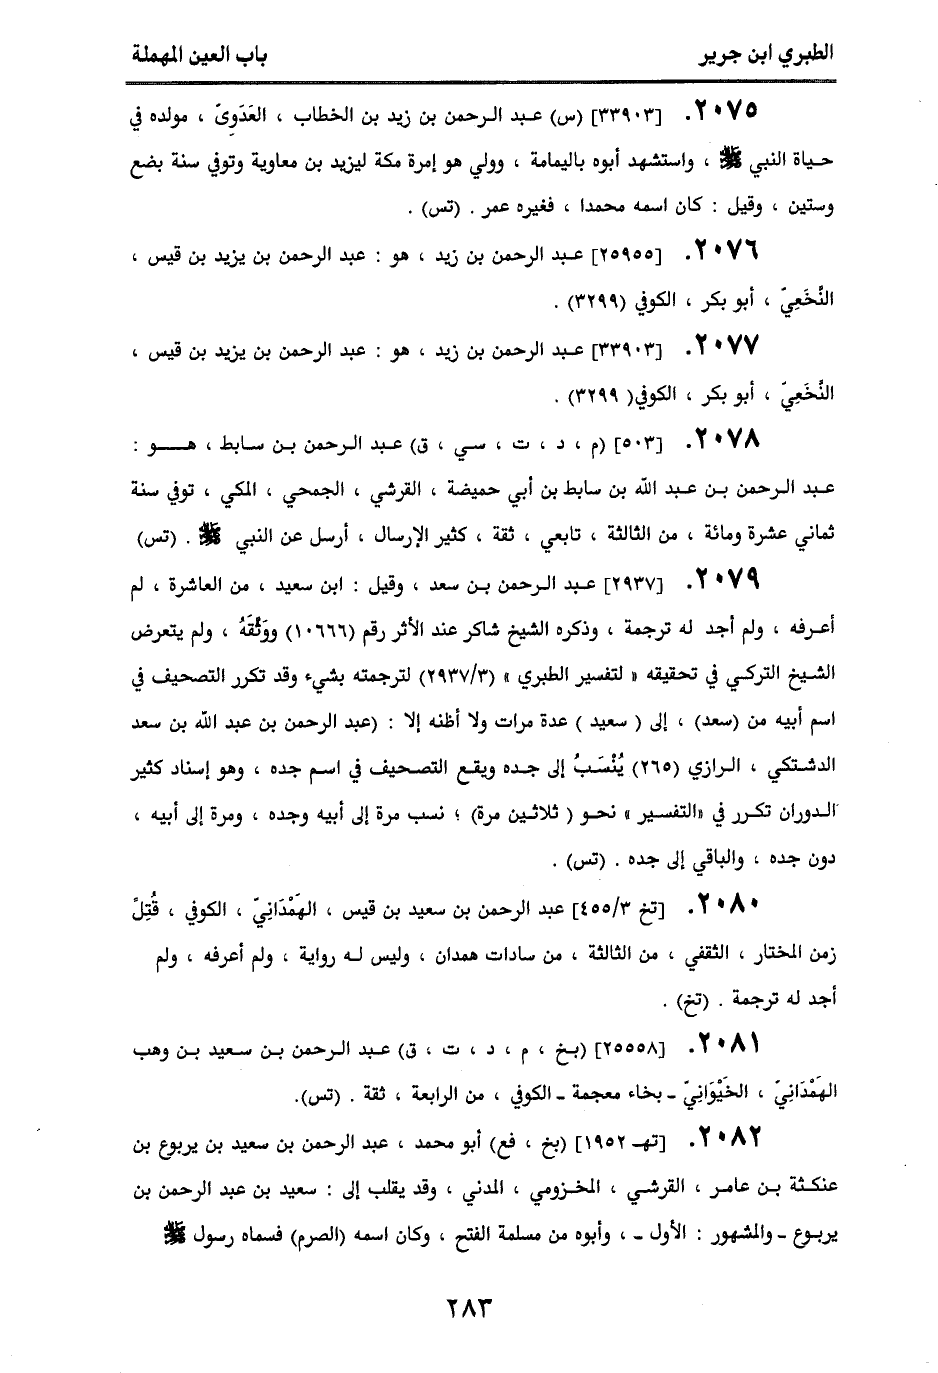 الطبري ابن جرير باب العين المهملة
٢٠٧٥. [٣٣٩٠٣] (س) عبد الرحمن بن زيد بن الخطاب ، العَدَوِيّ ، مولده في
حياة النبي ﷺ ، واستشهد أبوه باليمامة ، وولي هو إمرة مكة ليزيد بن معاوية وتوفي سنة بضع
وستين ، وقيل : كان اسمه محمدا ، فغيره عمر . (تس) .
٢٠٧٦. [٢٥٩٥٥] عبد الرحمن بن زيد ، هو : عبد الرحمن بن يزيد بن قيس ،
النَّخَعِيّ ، أبو بكر ، الكوفي (٣٢٩٩) .
٢٠٧٧. [٣٣٩٠٣] عبد الرحمن بن زيد ، هو : عبد الرحمن بن يزيد بن قيس ،
النَّخَعِيّ ، أبو بكر ، الكوفي( ٣٢٩٩) .
٢٠٧٨. [٥٠٣] (م ، د ، ت ، سي ، ق) عبد الرحمن بن سابط ، هو :
عبد الرحمن بن عبد الله بن سابط بن أبي حميضة ، القرشي ، الجمحي ، المكي ، توفي سنة
ثماني عشرة ومائة ، من الثالثة ، تابعي ، ثقة ، كثير الإرسال ، أرسل عن النبي ﷺ . (تس)
٢٠٧٩. [٢٩٣٧] عبد الرحمن بن سعد ، وقيل : ابن سعيد ، من العاشرة ، لم
أعرفه ، ولم أجد له ترجمة ، وذكره الشيخ شاكر عند الأثر رقم (١٠٦٦٦) ووَثَّقَهُ ، ولم يتعرض
الشيخ التركي في تحقيقه « لتفسير الطبري » (٢٩٣٧/٣) لترجمته بشيء وقد تكرر التصحيف في
اسم أبيه من (سعد) ، إلى ( سعيد ) عدة مرات ولا أظنه إلا : (عبد الرحمن بن عبد الله بن سعد
الدشتكي ، الرازي (٢٦٥) يُنْسَبُ إلى جده ويقع التصحيف في اسم جده ، وهو إسناد كثير
الدوران تكرر في «التفسير » نحو ( ثلاثين مرة) ؛ نسب مرة إلى أبيه وجده ، ومرة إلى أبيه ،
دون جده ، والباقي إلى جده . (تس) .
٢٠٨٠. [تخ ٤٥٥/٣] عبد الرحمن بن سعيد بن قيس ، الهَمْدَانِيّ ، الكوفي ، قُتِلَ
زمن المختار ، الثقفي ، من الثالثة ، من سادات همدان ، وليس له رواية ، ولم أعرفه ، ولم
أجد له ترجمة . (تخ) .
٢٠٨١. [٢٥٥٥٨] (بخ ، م ، د ، ت ، ق) عبد الرحمن بن سعيد بن وهب
الهَمْدَانِيّ ، الخَيْوَانِيّ ـ بخاء معجمة ـ الكوفي ، من الرابعة ، ثقة . (تس).
٢٠٨٢. [تهـ ١٩٥٢] (بخ ، فع) أبو محمد ، عبد الرحمن بن سعيد بن يربوع بن
عنكثة بن عامر ، القرشي ، المخزومي ، المدني ، وقد يقلب إلى : سعيد بن عبد الرحمن بن
يربوع ـ والمشهور : الأول ـ ، وأبوه من مسلمة الفتح ، وكان اسمه (الصرم) فسماه رسول ﷺ
٢٨٣